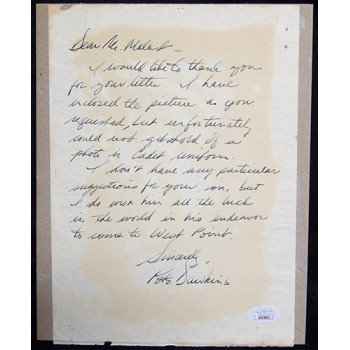 Dear Mr. Malast-
I would like to thank you
for your letter. I have
inclosed the picture as you
requested, but unfortunately
could not get ahold of a
photo in Cadet uniform.
I don't have any particular
suggestions for your son, but
I do wish him all the luck
in the world in his endeavor
to come to West Point.
Sincerely,
Pete Dawkins